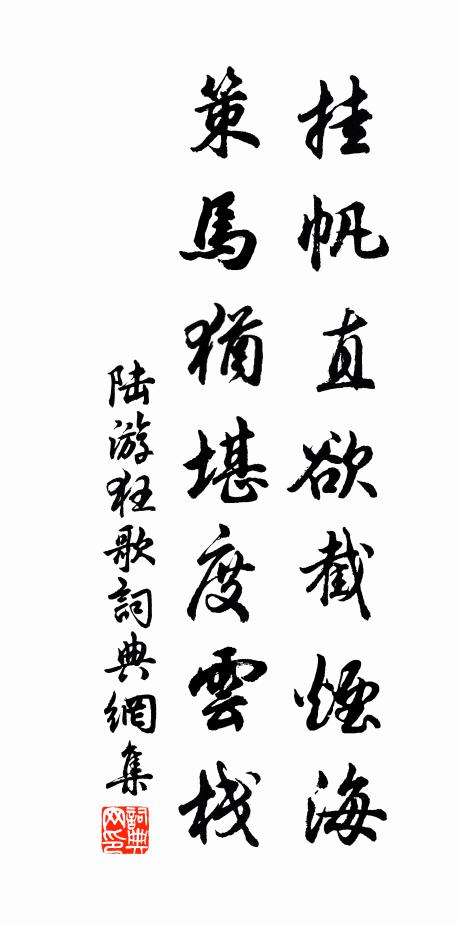 挂帆直欲截煙海
策馬猶堪度雲棧
陆游狂歌詞典網集
詞典網印